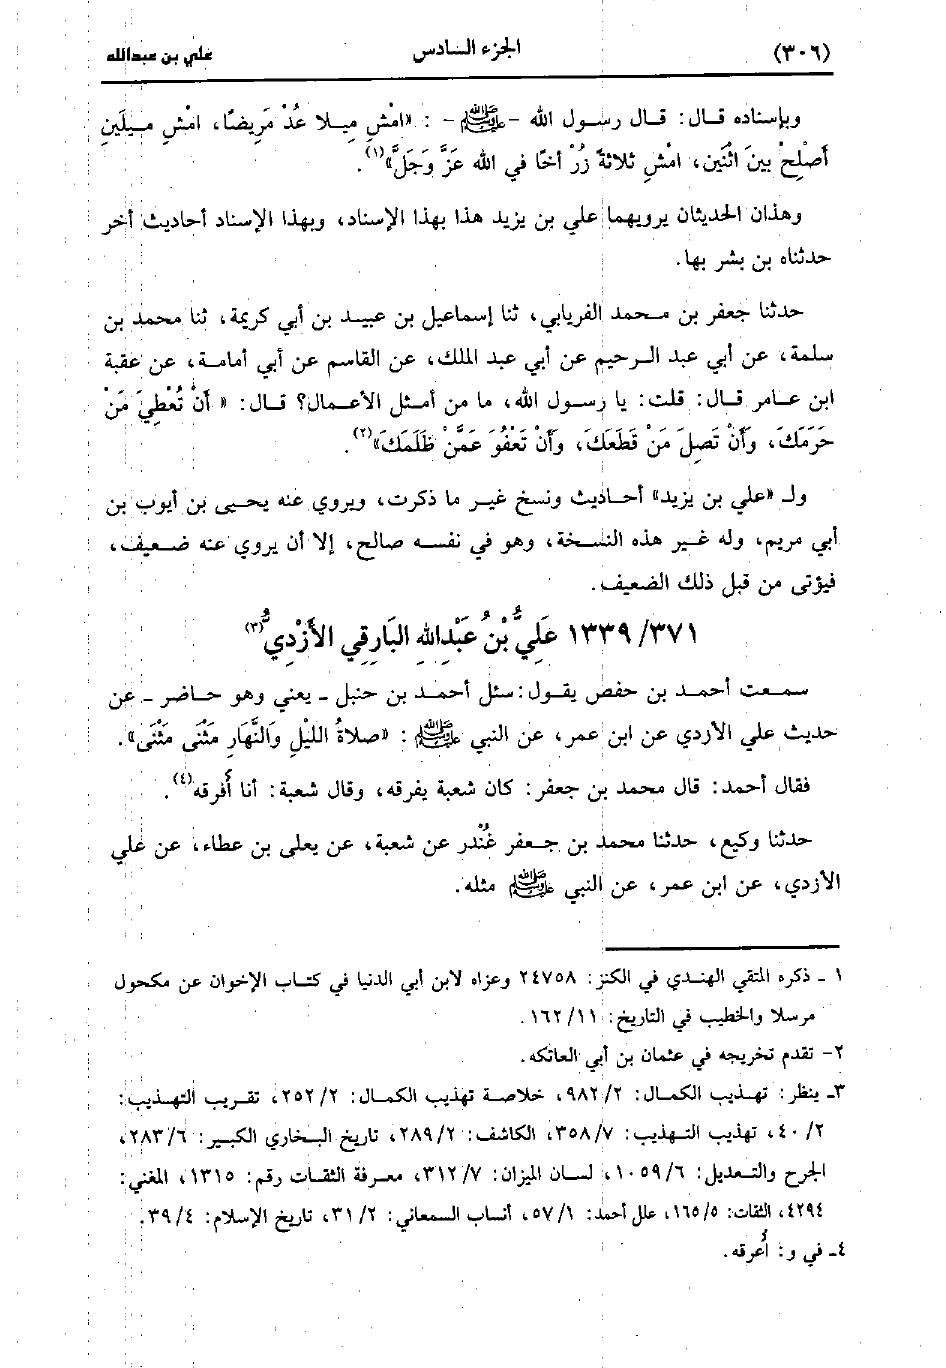 (٣٠٦) الجزء السادس علي بن عبدالله
وبإسناده قال: قال رسول الله -ﷺ- : «امْشِ مِيلا عُدْ مَرِيضًا، امْشِ مِيلَينِ
أَصْلِحْ بينَ اثْنَين، امْشِ ثلاثةً زُرْ أخًا في الله عَزَّ وَجَلَّ»(١).
وهذان الحديثان يرويهما علي بن يزيد هذا بهذا الإسناد، وبهذا الإسناد أحاديث أخر
حدثناه بن بشر بها.
حدثنا جعفر بن محمد الفريابي، ثنا إسماعيل بن عبيد بن أبي كريمة، ثنا محمد بن
سلمة، عن أبي عبد الرحيم عن أبي عبد الملك، عن القاسم عن أبي أمامة، عن عقبة
ابن عامر قال: قلت: يا رسول الله، ما من أمثل الأعمال؟ قال: « أَنْ تُعْطِيَ مَنْ
حَرَمَكَ، وَأَنْ تَصِلَ مَنْ قَطَعَكَ، وَأَنْ تَعْفُوَ عَمَّنْ ظَلَمَكَ»(٢).
ولـ «علي بن يزيد» أحاديث ونسخ غير ما ذكرت، ويروي عنه يحيى بن أيوب بن
أبي مريم، وله غير هذه النسخة، وهو في نفسه صالح، إلا أن يروي عنه ضعيف،
فيؤتى من قبل ذلك الضعيف.
١٣٣٩/٣٧١ عَلِيُّ بْنُ عَبْدِاللهِ البَارِقِي الأَزْدِيُّ(٣)
سمعت أحمد بن حفص يقول: سئل أحمد بن حنبل ـ يعني وهو حاضر ـ عن
حديث علي الأزدي عن ابن عمر، عن النبي ﷺ : «صلاةُ الليْلِ وَالنَّهَارِ مَثْنَى مَثْنَى».
فقال أحمد: قال محمد بن جعفر: كان شعبة يفرقه، وقال شعبة: أنا أُفرقه(٤).
حدثنا وكيع، حدثنا محمد بن جعفر غُنْدر عن شعبة، عن يعلى بن عطاء، عن علي
الأزدي، عن ابن عمر، عن النبي ﷺ مثله.
١ ـ ذكره المتقي الهندي في الكنز: ٢٤٧٥٨ وعزاه لابن أبي الدنيا في كتاب الإخوان عن مكحول
مرسلا والخطيب في التاريخ: ١٦٢/١١.
٢- تقدم تخريجه في عثمان بن أبي العاتكه.
٣ـ ينظر: تهذيب الكمال: ٩٨٢/٢، خلاصة تهذيب الكمال: ٢٥٢/٢، تقريب التهذيب:
٤٠/٢، تهذيب التهذيب: ٣٥٨/٧، الكاشف: ٢٨٩/٢، تاريخ البخاري الكبير: ٢٨٣/٦،
الجرح والتعديل: ١٠٥٩/٦، لسان الميزان: ٣١٢/٧، معرفة الثقات رقم: ١٣١٥، المغني:
٤٢٩٤، الثقات: ١٦٥/٥، علل أحمد: ٥٧/١، أنساب السمعاني: ٣١/٢، تاريخ الإسلام: ٣٩/٤.
٤ـ في و: أُعرقه.